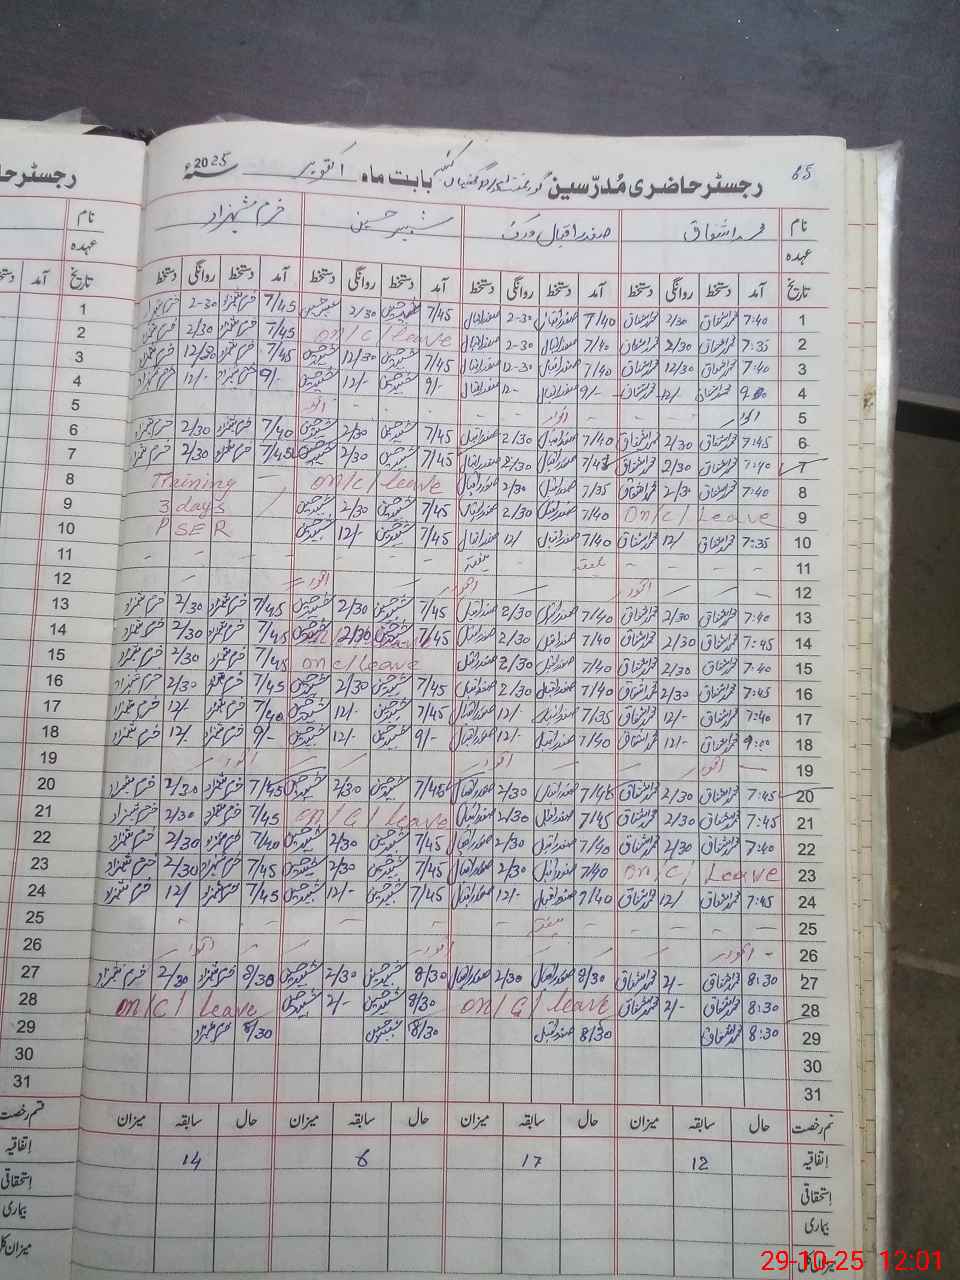 65 رجسٹر حاضری مُدرّسین بابت ماہ اکتوبر 2025
رجسٹر حا
نام محمد اشفاق صفدر اقبال شبیر حسین خرم شہزاد
عہدہ
تاریخ آمد دستخط روانگی دستخط آمد دستخط روانگی دستخط آمد دستخط روانگی دستخط آمد دستخط روانگی دستخط
1 7:40 محمد اشفاق 2/30 محمد اشفاق 7/40 صفدر اقبال 2-30 صفدر اقبال 7/45 شبیر حسین 2/30 شبیر حسین 7/45 خرم شہزاد 2-30 خرم شہزاد
2 7:35 محمد اشفاق 2/30 محمد اشفاق 7/40 صفدر اقبال 2-30 صفدر اقبال on/c/leave 7/45 خرم شہزاد 2/30 خرم شہزاد
3 7:40 محمد اشفاق 12/30 محمد اشفاق 7/40 صفدر اقبال 12-30 صفدر اقبال 7/45 شبیر حسین 12/30 شبیر حسین 7/45 خرم شہزاد 12/30 خرم شہزاد
4 محمد اشفاق 12/ محمد اشفاق 9/- صفدر اقبال 12- صفدر اقبال 9/- شبیر حسین 12/- شبیر حسین 9/- خرم شہزاد 12/- خرم شہزاد
5 اتوار اتوار اتوار
6 7:45 محمد اشفاق 2/30 محمد اشفاق 7/40 صفدر اقبال 2/30 صفدر اقبال 7/45 شبیر حسین 2/30 شبیر حسین 7/40 خرم شہزاد 2/30 خرم شہزاد
7 7:40 محمد اشفاق 2/30 محمد اشفاق صفدر اقبال 2/30 صفدر اقبال 7/45 شبیر حسین 2/30 شبیر حسین 7/45 خرم شہزاد 2/30 خرم شہزاد
8 7:40 محمد اشفاق 2/30 محمد اشفاق 7/35 صفدر اقبال 2/30 صفدر اقبال on/c/leave Training
9 On/C/Leave 7/40 صفدر اقبال 2/30 صفدر اقبال 7/45 شبیر حسین 2/30 شبیر حسین 3 days
10 7:35 محمد اشفاق 12/ محمد اشفاق 7/40 صفدر اقبال 12/ صفدر اقبال 7/45 شبیر حسین 12/- شبیر حسین PSER
11 ہفتہ ہفتہ
12 اتوار اتوار اتوار
13 7:40 محمد اشفاق 2/30 محمد اشفاق 7/40 صفدر اقبال 2/30 صفدر اقبال 7/45 شبیر حسین 2/30 شبیر حسین 7/45 خرم شہزاد 2/30 خرم شہزاد
14 7:45 محمد اشفاق 2/30 محمد اشفاق 7/40 صفدر اقبال 2/30 صفدر اقبال 7/45 شبیر حسین 2/30 شبیر حسین 7/45 خرم شہزاد 2/30 خرم شہزاد
15 7:40 محمد اشفاق 2/30 محمد اشفاق 7/40 صفدر اقبال 2/30 صفدر اقبال on c/leave 7/45 خرم شہزاد 2/30 خرم شہزاد
16 7:45 محمد اشفاق 2/30 محمد اشفاق 7/40 صفدر اقبال 2/30 صفدر اقبال 7/45 شبیر حسین 2/30 شبیر حسین 7/45 خرم شہزاد 2/30 خرم شہزاد
17 7:40 محمد اشفاق 12/- محمد اشفاق 7/35 صفدر اقبال 12/- صفدر اقبال 7/45 شبیر حسین 12/- شبیر حسین 7/40 خرم شہزاد 12/- خرم شہزاد
18 9:00 محمد اشفاق 12/- محمد اشفاق 7/40 صفدر اقبال 12/- صفدر اقبال 9/- شبیر حسین 12/- شبیر حسین 9/- خرم شہزاد 12/- خرم شہزاد
19 اتوار اتوار اتوار
20 7:45 محمد اشفاق 2/30 محمد اشفاق 7/45 صفدر اقبال 2/30 صفدر اقبال 7/45 شبیر حسین 2/30 شبیر حسین 7/45 خرم شہزاد 2/30 خرم شہزاد
21 7:45 محمد اشفاق 2/30 محمد اشفاق 7/45 صفدر اقبال 2/30 صفدر اقبال on/c/leave 7/45 خرم شہزاد 2/30 خرم شہزاد
22 7:40 محمد اشفاق 2/30 محمد اشفاق 7/40 صفدر اقبال 2/30 صفدر اقبال 7/45 شبیر حسین 2/30 شبیر حسین 7/40 خرم شہزاد 2/30 خرم شہزاد
23 On/C/Leave 7/40 صفدر اقبال 2/30 صفدر اقبال 7/45 شبیر حسین 2/30 شبیر حسین 7/45 خرم شہزاد 2/30 خرم شہزاد
24 7:45 محمد اشفاق 12/ محمد اشفاق 7/40 صفدر اقبال 12/- صفدر اقبال 7/45 شبیر حسین 12/- شبیر حسین 7/45 خرم شہزاد 12/ خرم شہزاد
25 ہفتہ
26 اتوار اتوار اتوار
27 8:30 محمد اشفاق 2/- محمد اشفاق 8/30 صفدر اقبال 2/30 صفدر اقبال 8/30 شبیر حسین 2/30 شبیر حسین 8/30 خرم شہزاد 2/30 خرم شہزاد
28 8:30 محمد اشفاق 2/- محمد اشفاق on/C/leave 8/30 شبیر حسین 2/- شبیر حسین on/C/leave
29 8:30 محمد اشفاق 8/30 صفدر اقبال 8/30 شبیر حسین 8/30 خرم شہزاد
30
31
قسم رخصت حال سابقہ میزان حال سابقہ میزان حال سابقہ میزان حال سابقہ میزان
اتفاقیہ 12 17 6 14
استحقاقی
بیماری
میزان کل
29-10-25 12:01